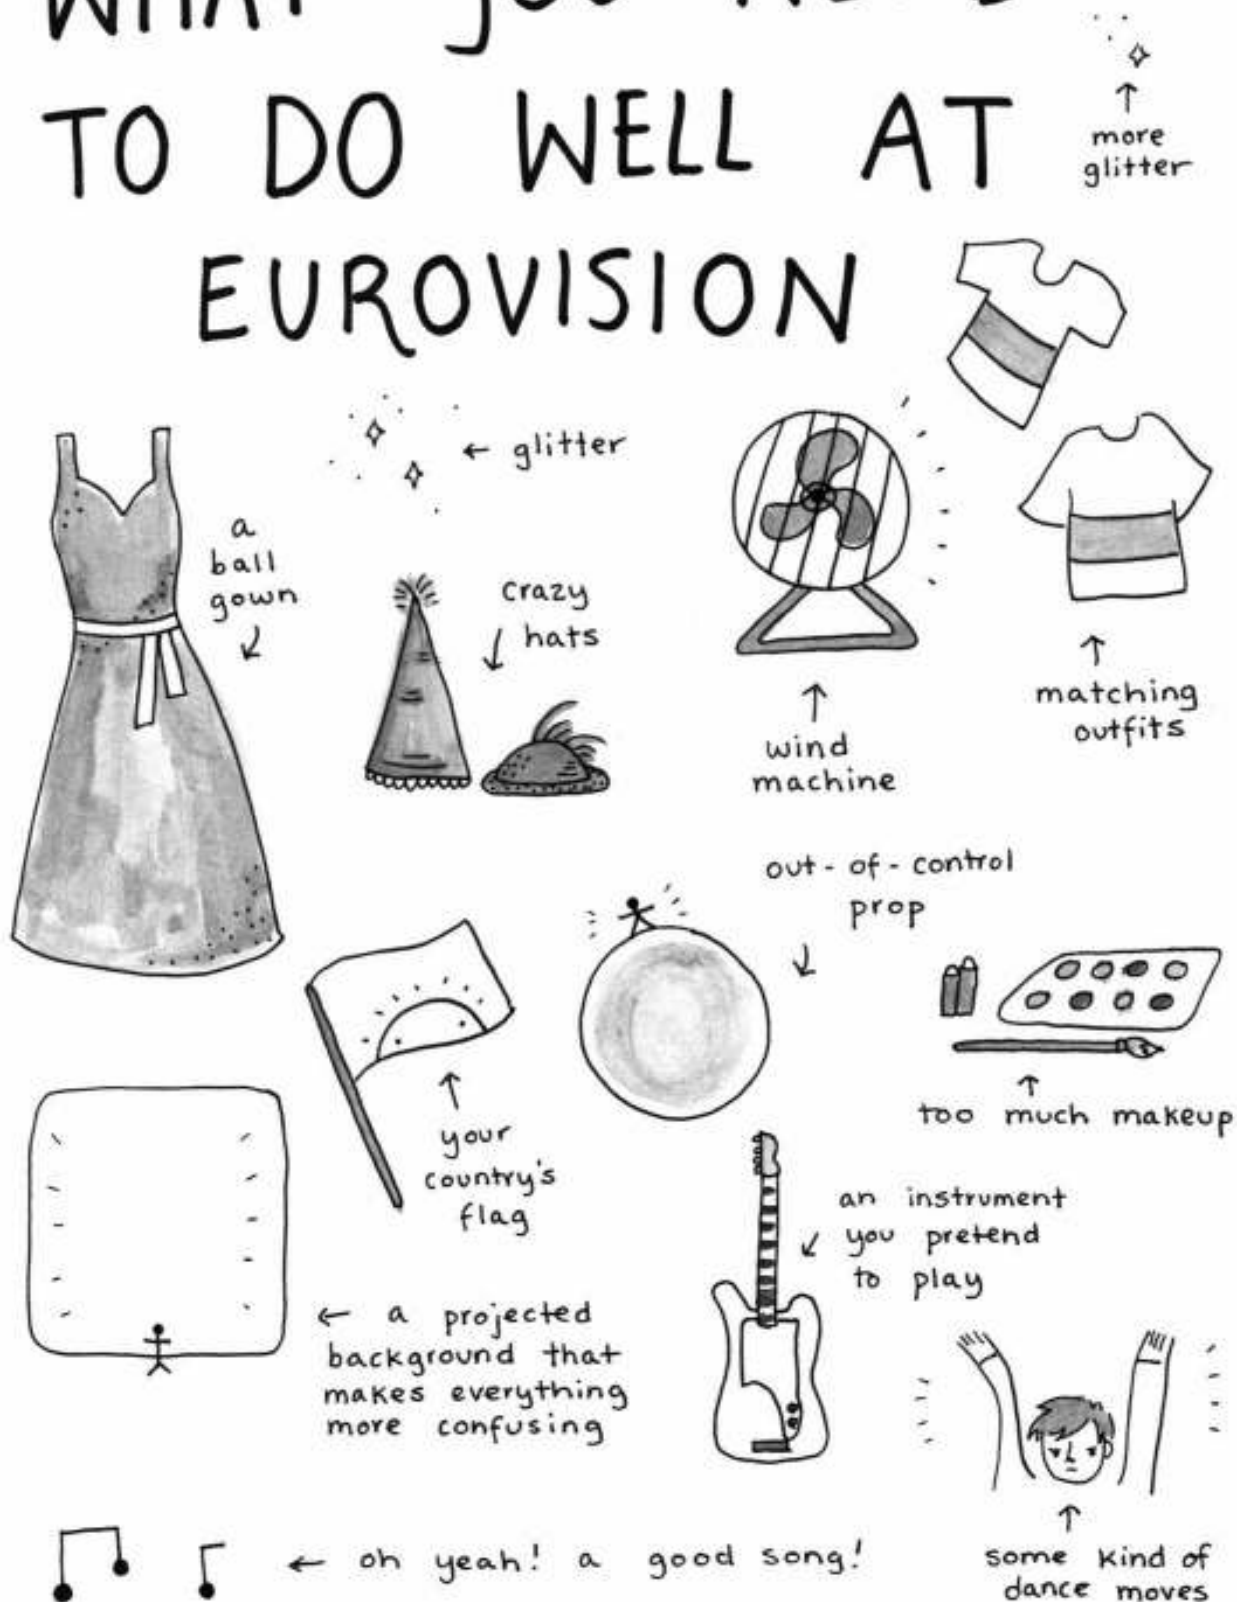 WHAT you NEED
TO DO WELL AT
EUROVISION
more
glitter
← glitter
a
ball
gown
crazy
hats
wind
machine
matching
outfits
out-of-control
prop
your
country's
flag
too much makeup
an instrument
you pretend
to play
← a projected
background that
makes everything
more confusing
← oh yeah! a good song!
some kind of
dance moves